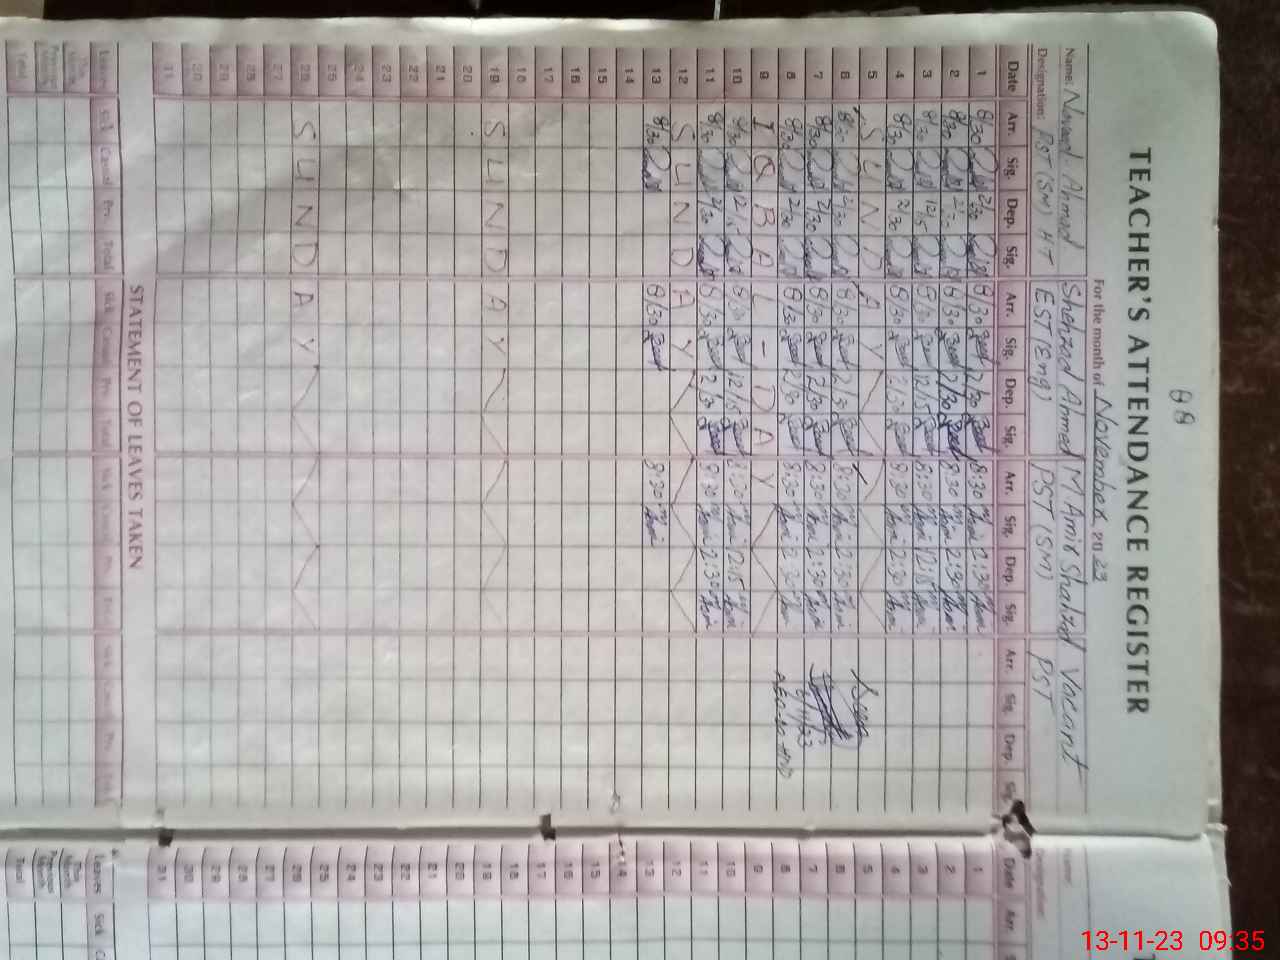 88
TEACHER'S ATTENDANCE REGISTER
For the month of November 2023
Name: Naveed Ahmad Shehzad Ahmed M. Amir Shahzad Vacant
Designation: PST (SM) HT EST (Eng) PST (SM) PST
Date Arr. Sig. Dep. Sig. Arr. Sig. Dep. Sig. Arr. Sig. Dep. Sig. Arr. Sig. Dep. Sig.
1 8/30 2/30 8/30 2/30 8:30 2:30
2 8/30 2/30 8/30 2/30 8:30 2:30
3 8/30 12/15 8/30 12/15 8:30 12:15
4 8/30 2/30 8/30 2/30 8:30 2:30
5 S U N D A Y
6 8/30 2/30 8/30 2/30 8:30 2:30
7 8/30 2/30 8/30 2/30 8:30 2:30
6/11/23
8 8/30 2/30 8/30 2/30 8:30 2:30
9 I Q B A L - D A Y
10 8/30 12/15 8/30 12/15 8:30 12:15
11 8/30 2/30 8/30 2/30 8:30 2:30
12 S U N D A Y
13 8/30 8/30 8:30
14
15
16
17
18
19 S U N D A Y
20
21
22
23
24
25
26 S U N D A Y
27
28
29
30
31
STATEMENT OF LEAVES TAKEN
Leaves Sick Casual Prv. Total Sick Casual Prv. Total Sick Casual Prv. Total Sick Casual Prv. Total
This Month
Previous Month
Total
Name:
Designation:
Date Arr.
1
2
3
4
5
6
7
8
9
10
11
12
13
14
15
16
17
18
19
20
21
22
23
24
25
26
27
28
29
30
31
Leaves Sick
This Month
Previous Month
Total
13-11-23 09:35